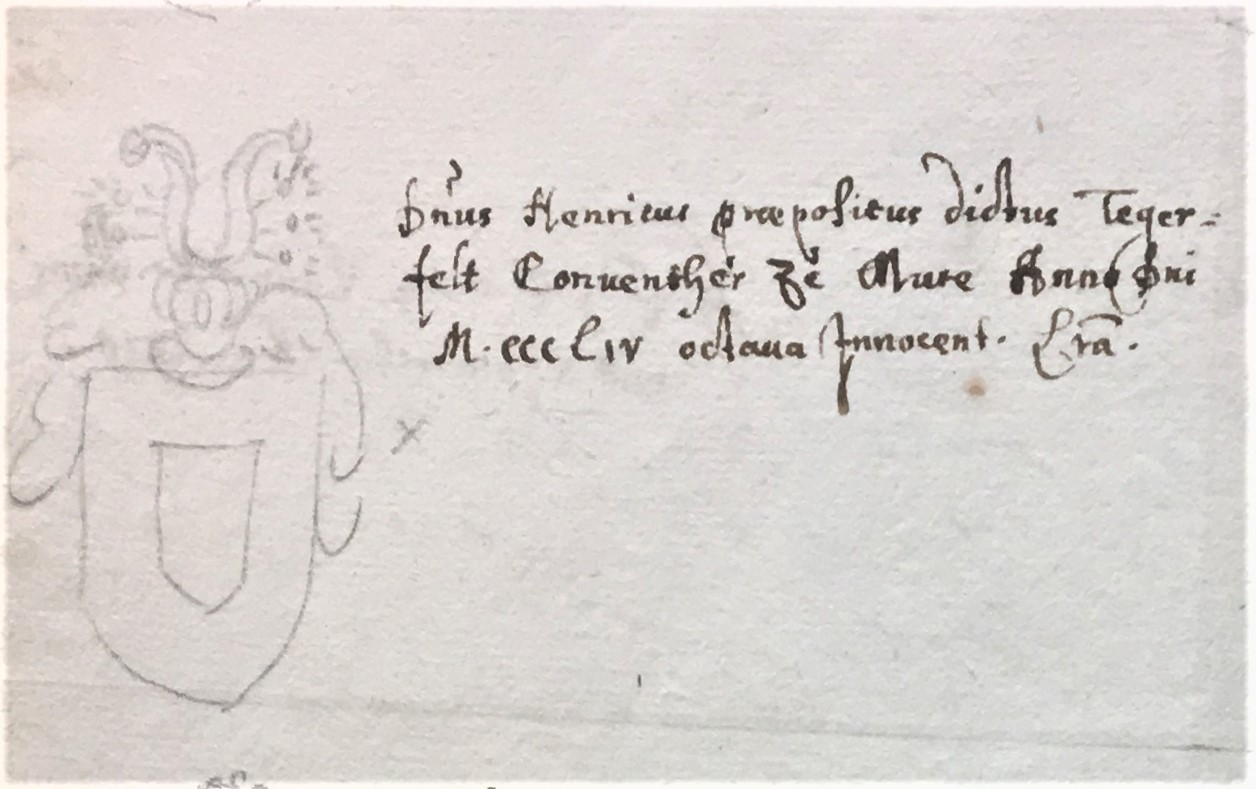 Dn̄us Henricus præpositus dictus Teger=
felt Conuenther Zĕ Mure Anno Dni
M. CCC LIV octaua Innocent. Lrā.